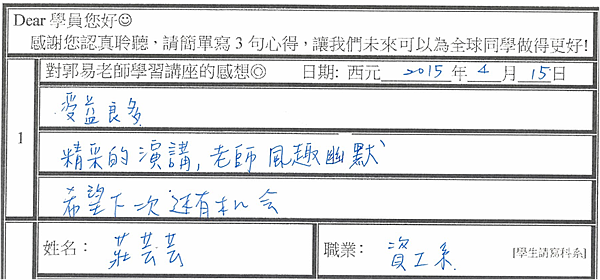 Dear 學員您好☺
感謝您認真聆聽，請簡單寫3句心得，讓我們未來可以為全球同學做得更好!
1
對郭易老師學習講座的感想◎ 日期: 西元 2015 年 4 月 15 日
受益良多
精采的演講, 老師風趣幽默
希望下次还有机会
姓名： 莊芸芸 職業： 資工系 [學生請寫科系]